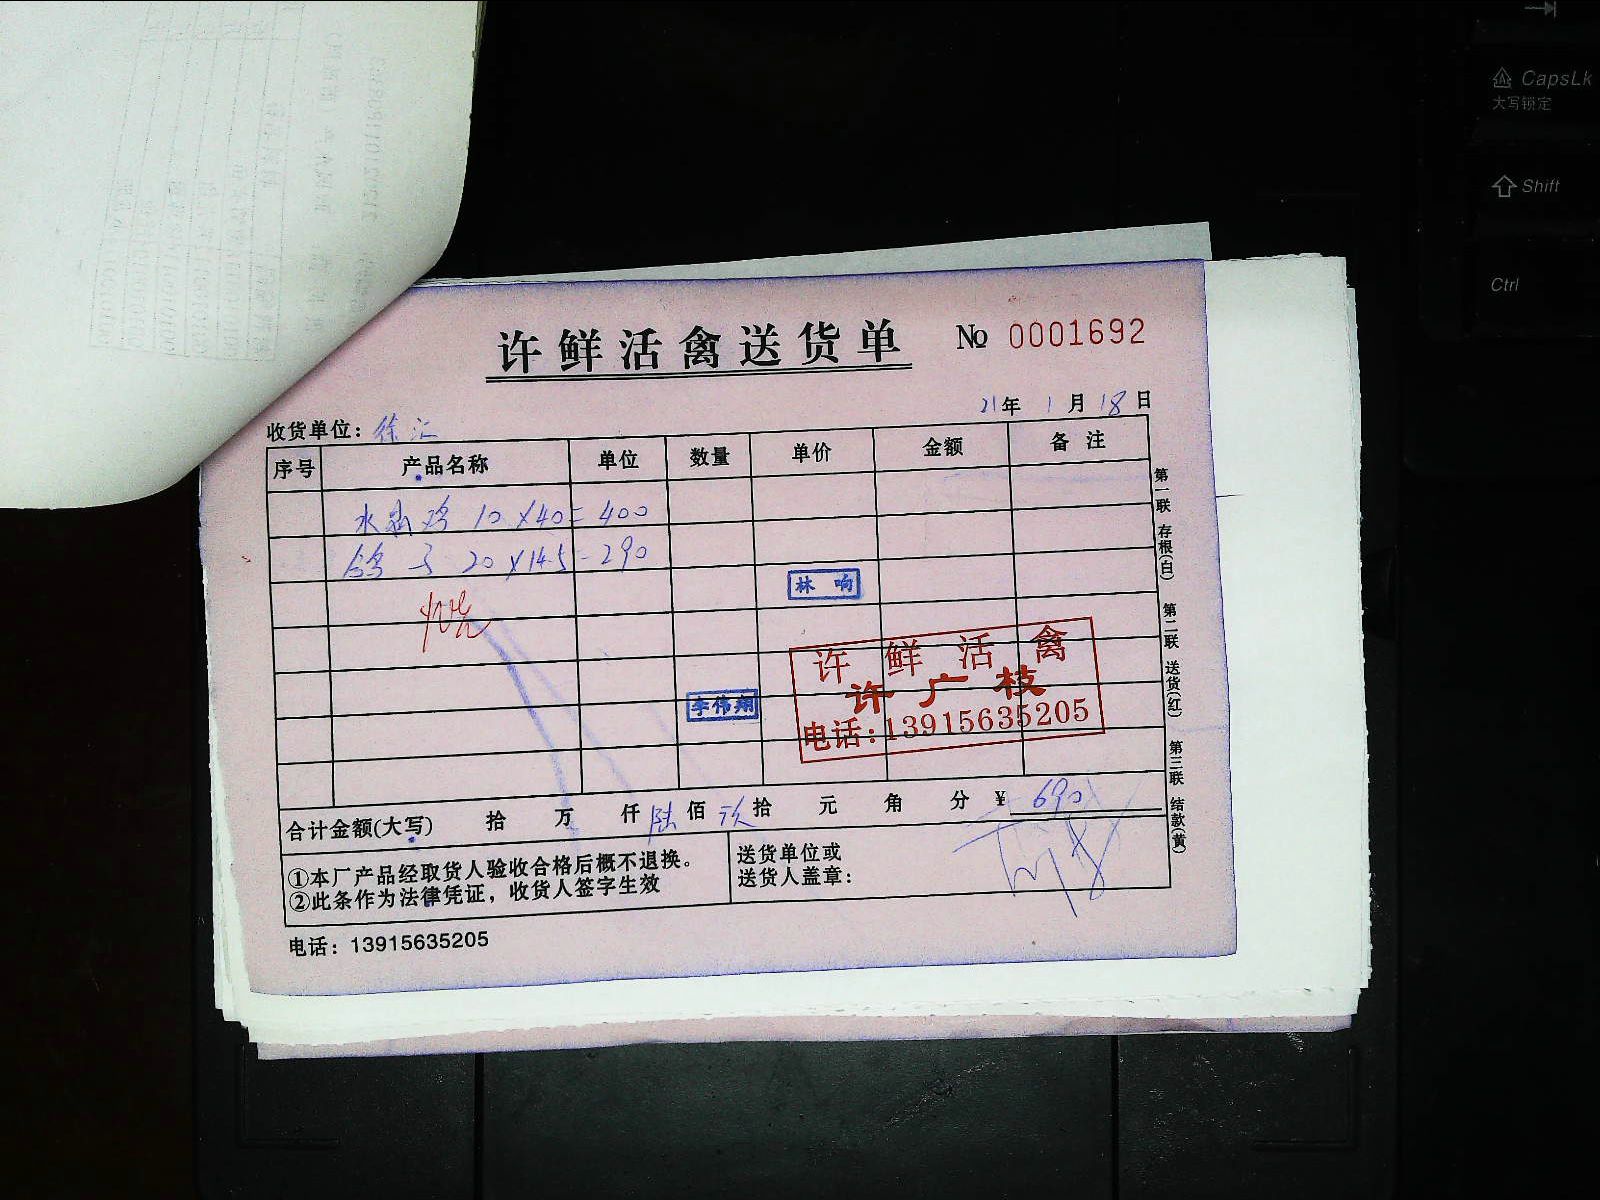 许鲜活禽送货单 № 0001692
21年 1月18日
收货单位：徐汇
序号 产品名称 单位 数量 单价 金额 备注
水 鸡 10×40=400
鸽子 20×14.5=290
林响
李伟翔
许鲜活禽
许广枝
电话:13915635205
合计金额(大写) 拾 万 仟 陆佰 玖拾 元 角 分 ¥ 690
①本厂产品经取货人验收合格后概不退换。
②此条作为法律凭证，收货人签字生效
送货单位或
送货人盖章：
电话：13915635205
第一联 存根(白) 第二联 送货(红) 第三联 结款(黄)
CapsLk
大写锁定
Shift
Ctrl